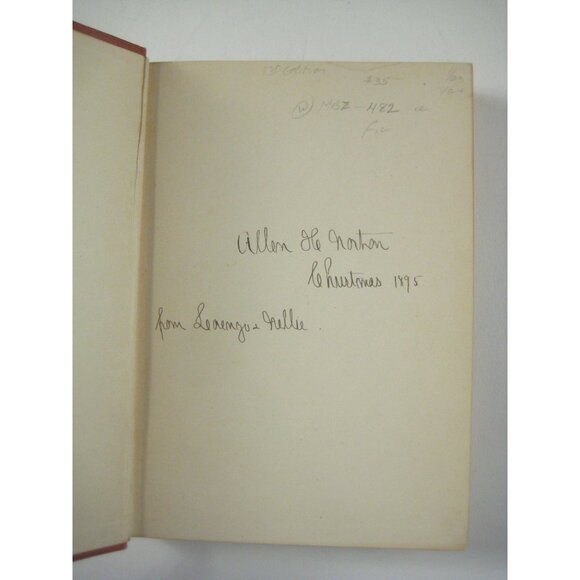 1st edition $35
MBZ - 482
Fic
Allen H Norton
Christmas 1895
from Lorenzo & Nellie.